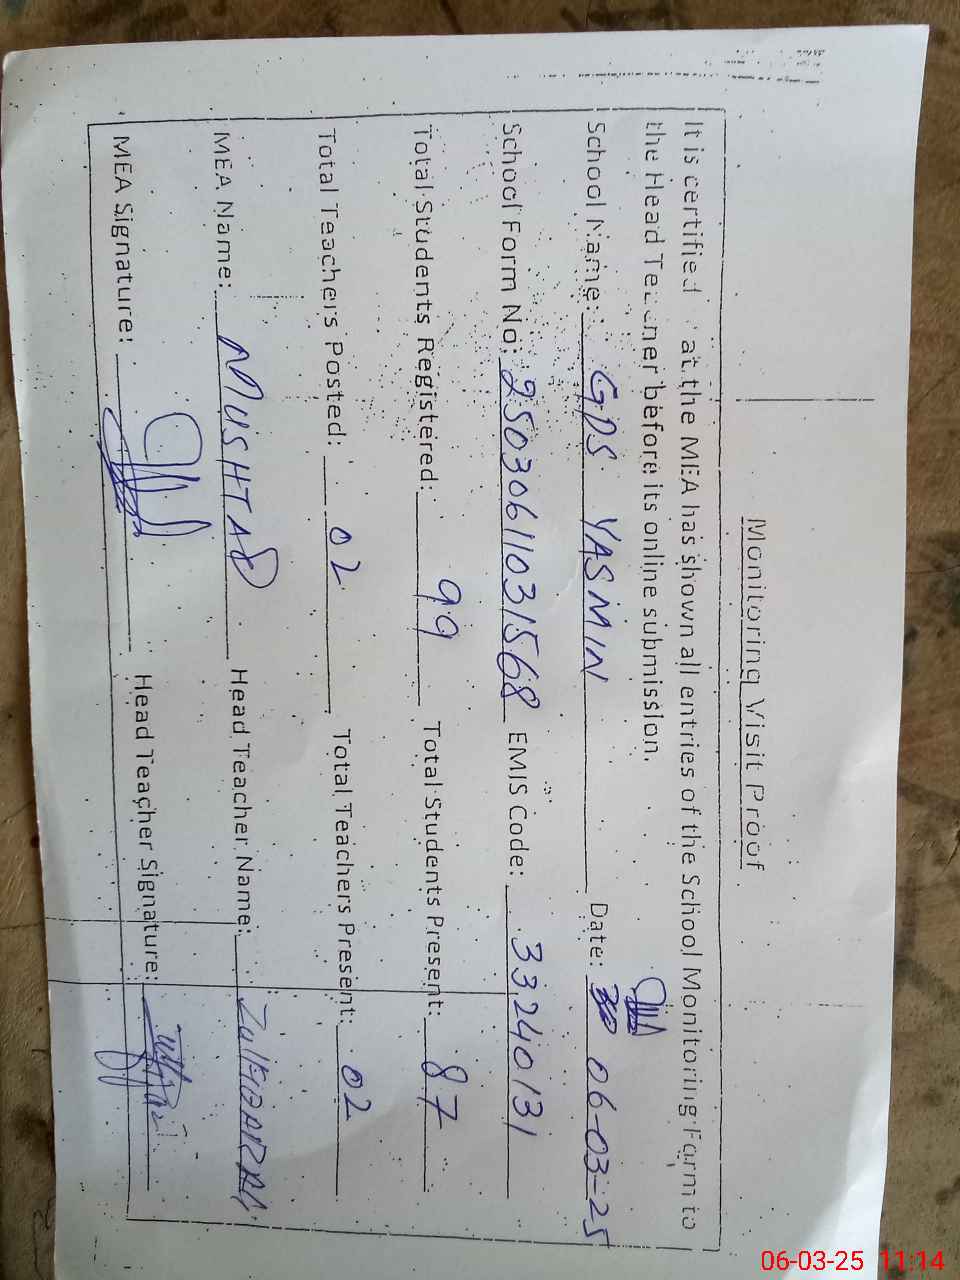 Monitoring Visit Proof
It is certified at the MEA has shown all entries of the School Monitoring Form to
the Head Teacher before its online submission.
School Name: GPS YASMIN Date: 06-03-25
School Form No: 25030611031568 EMIS Code: 33240131
Total Students Registered: 99 Total Students Present: 87
Total Teachers Posted: 02 Total Teachers Present: 02
MEA Name: MUSHTAQ Head Teacher Name:
MEA Signature: Head Teacher Signature:
06-03-25 11:14